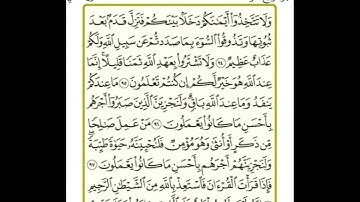 وَلَا تَتَّخِذُوٓا۟ أَيْمَٰنَكُمْ دَخَلًۢا بَيْنَكُمْ فَتَزِلَّ قَدَمٌۢ بَعْدَ
ثُبُوتِهَا وَتَذُوقُوا۟ ٱلسُّوٓءَ بِمَا صَدَدتُّمْ عَن سَبِيلِ ٱللَّهِ وَلَكُمْ
عَذَابٌ عَظِيمٌ ٩٤ وَلَا تَشْتَرُوا۟ بِعَهْدِ ٱللَّهِ ثَمَنًا قَلِيلًا إِنَّمَا
عِندَ ٱللَّهِ هُوَ خَيْرٌ لَّكُمْ إِن كُنتُمْ تَعْلَمُونَ ٩٥ مَا عِندَكُمْ
يَنفَدُ وَمَا عِندَ ٱللَّهِ بَاقٍ وَلَنَجْزِيَنَّ ٱلَّذِينَ صَبَرُوٓا۟ أَجْرَهُم
بِأَحْسَنِ مَا كَانُوا۟ يَعْمَلُونَ ٩٦ مَنْ عَمِلَ صَٰلِحًا
مِّن ذَكَرٍ أَوْ أُنثَىٰ وَهُوَ مُؤْمِنٌ فَلَنُحْيِيَنَّهُۥ حَيَوٰةً طَيِّبَةً
وَلَنَجْزِيَنَّهُمْ أَجْرَهُم بِأَحْسَنِ مَا كَانُوا۟ يَعْمَلُونَ ٩٧
فَإِذَا قَرَأْتَ ٱلْقُرْءَانَ فَٱسْتَعِذْ بِٱللَّهِ مِنَ ٱلشَّيْطَٰنِ ٱلرَّجِيمِ